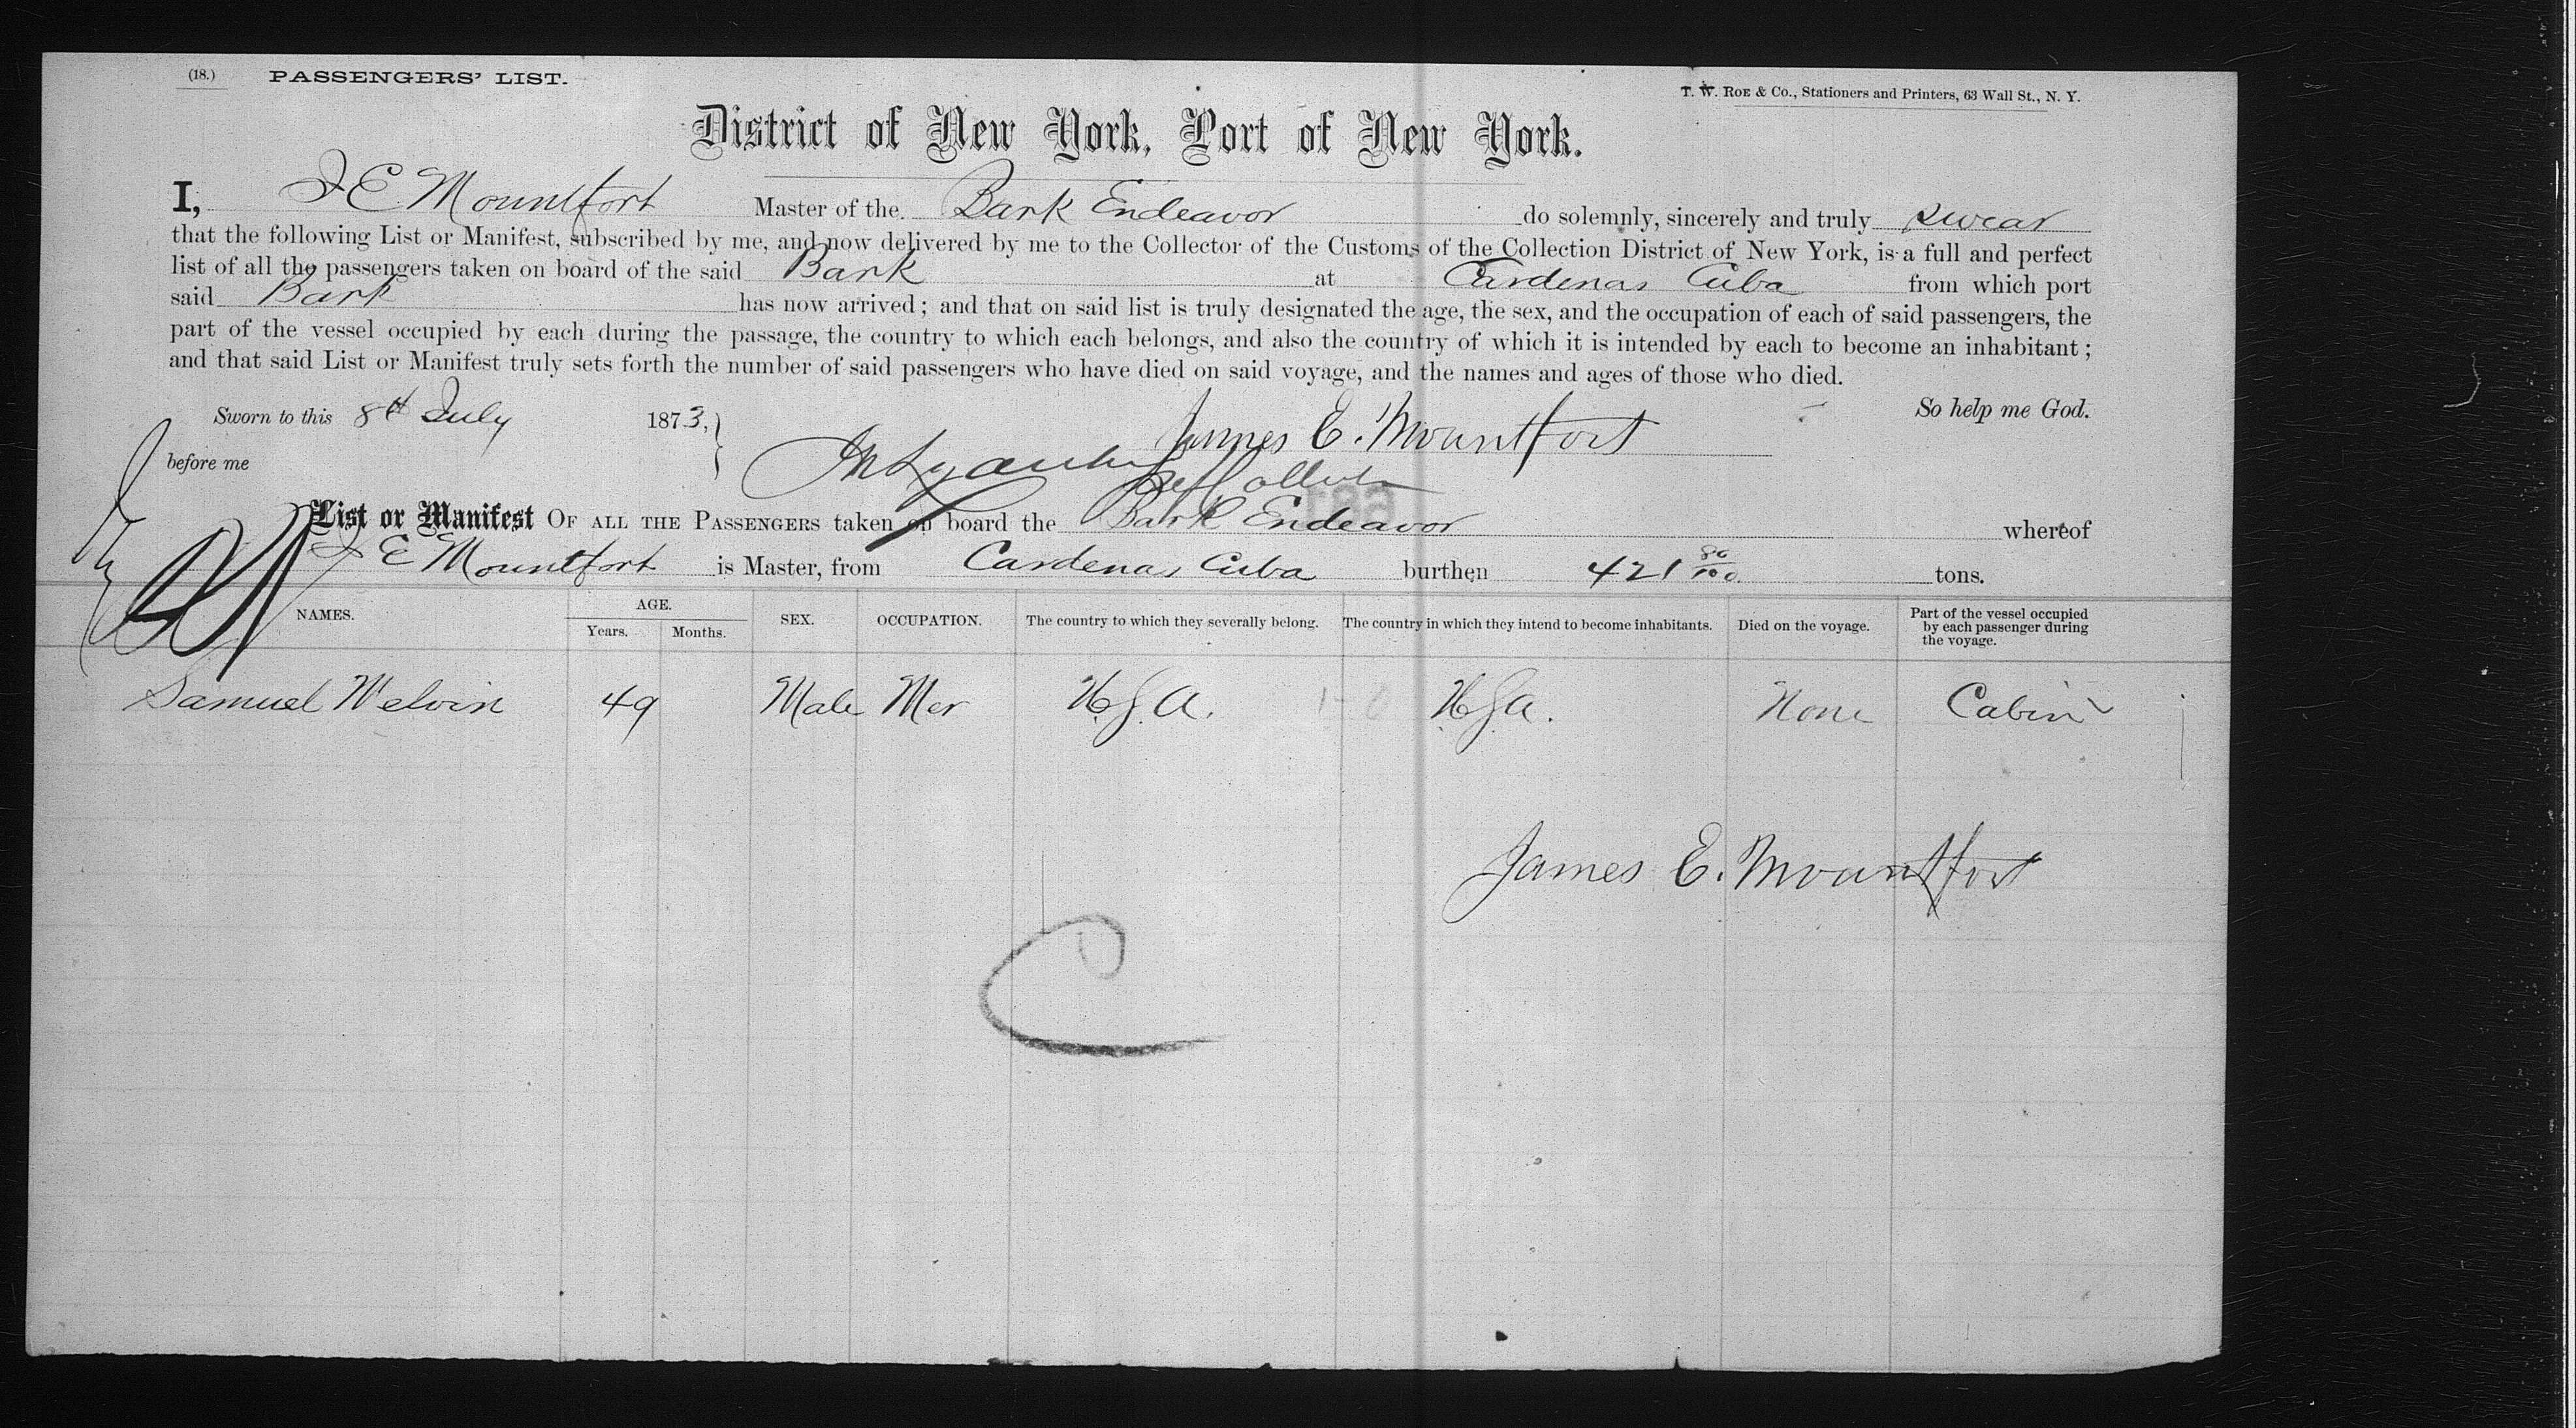 (18.) PASSENGERS' LIST.
T. W. ROE & Co., Stationers and Printers, 63 Wall St., N. Y.
District of New York, Port of New York.
I, J E Mountfort Master of the Bark Endeavor do solemnly, sincerely and truly swear
that the following List or Manifest, subscribed by me, and now delivered by me to the Collector of the Customs of the Collection District of New York, is a full and perfect
list of all the passengers taken on board of the said Bark at Cardenas Cuba from which port
said Bark has now arrived; and that on said list is truly designated the age, the sex, and the occupation of each of said passengers, the
part of the vessel occupied by each during the passage, the country to which each belongs, and also the country of which it is intended by each to become an inhabitant;
and that said List or Manifest truly sets forth the number of said passengers who have died on said voyage, and the names and ages of those who died.
Sworn to this 8th July 1873, James E. Mountfort So help me God.
before me
List or Manifest OF ALL THE PASSENGERS taken on board the Bark Endeavor whereof
J E Mountfort is Master, from Cardenas Cuba burthen 421 80/100 tons.
NAMES. AGE. Years. Months. SEX. OCCUPATION. The country to which they severally belong. The country in which they intend to become inhabitants. Died on the voyage. Part of the vessel occupied by each passenger during the voyage.
Samuel Melvin 49 Male Mer U.S.A. U.S.A. None Cabin
James E. Mountfort
C